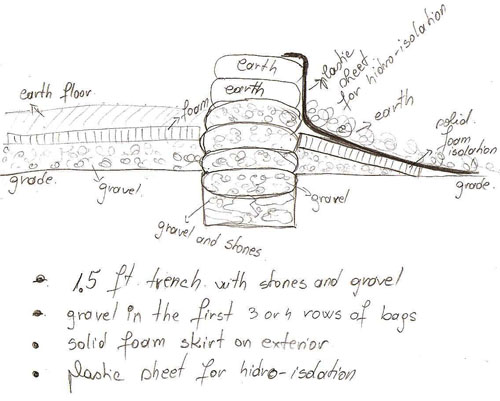 earth
earth
plastic
sheet
for hidro-isolation
earth floor
foam
earth
solid
foam
isolation
grade
gravel
gravel
grade.
gravel and stones
1.5 ft. trench with stones and gravel
gravel in the first 3 or 4 rows of bags
solid foam skirt on exterior
plastic sheet for hidro-isolation